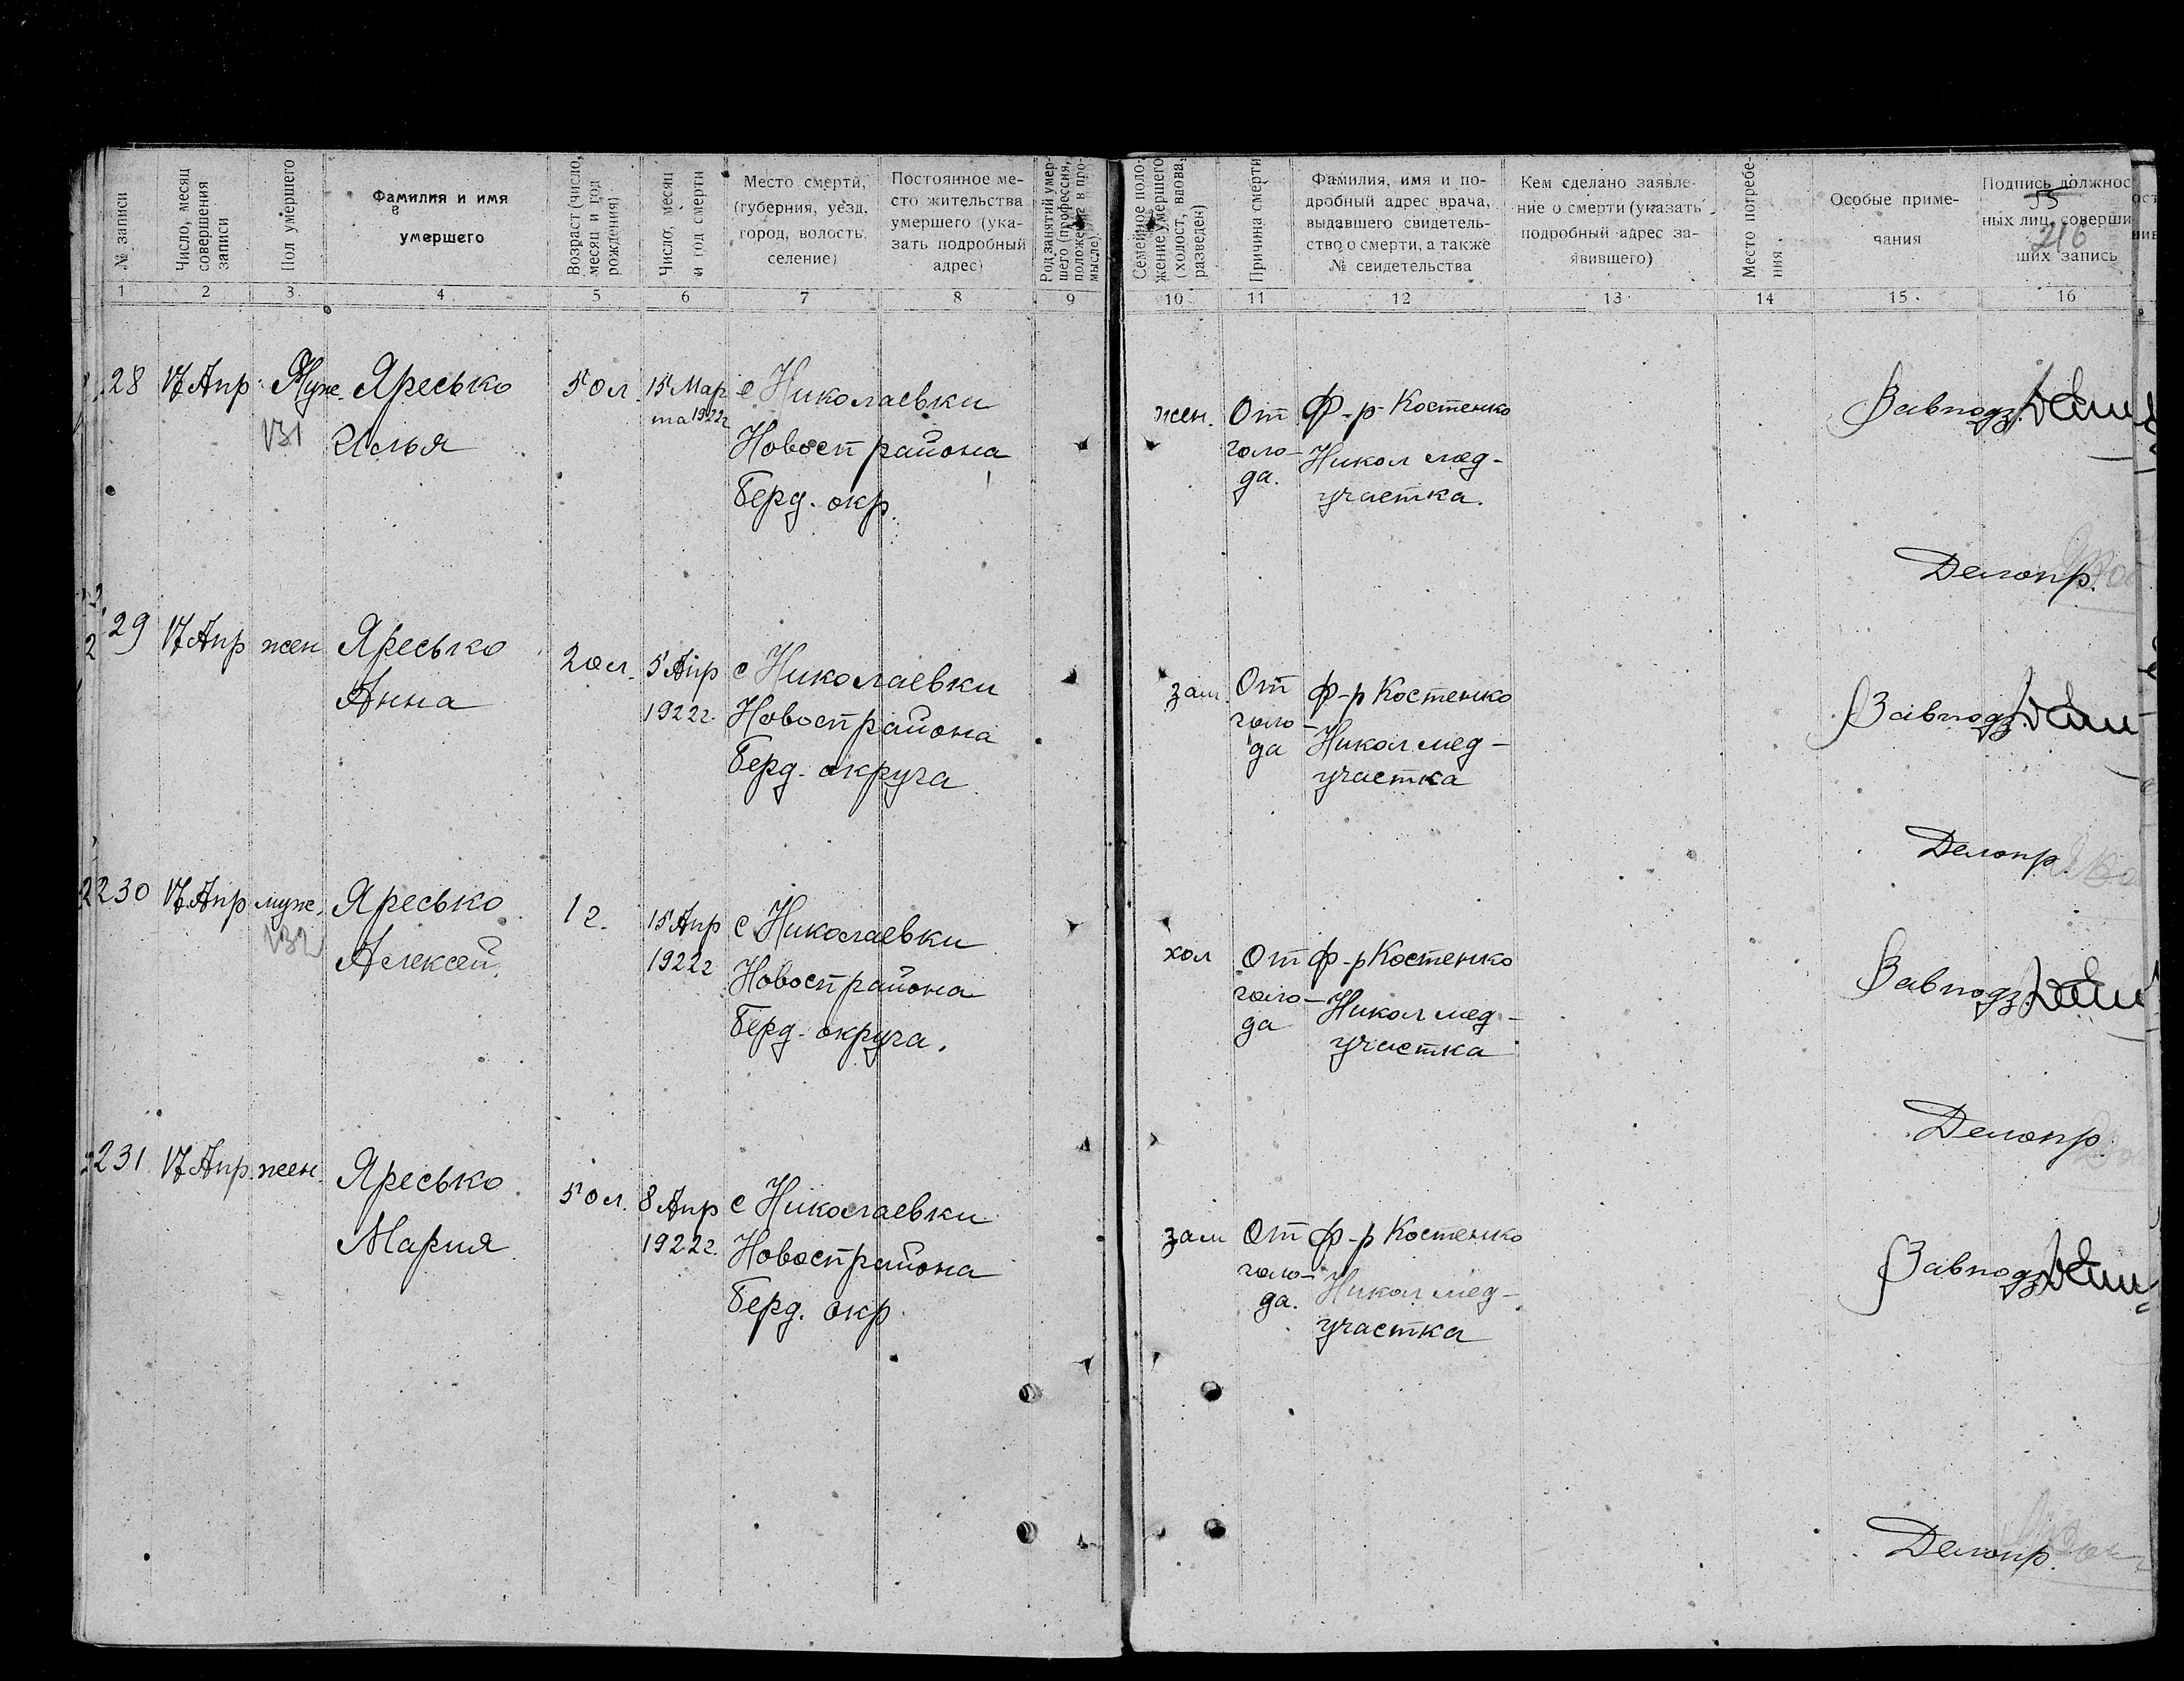 № записи
Число, месяц
совершения
записи
Пол умершего
Фамилия и имя
умершего
Возраст (число,
месяц и год
рождения)
Число, месяц
и год смерти
Место смерти,
(губерния, уезд,
город, волость,
селение)
Постоянное ме-
сто жительства
умершего (ука-
зать подробный
адрес)
Род занятий умер-
шего (профессия,
положение в про-
мысле)
Семейное поло-
жение умершего
(холост, вдова,
разведен)
Причина смерти
Фамилия, имя и по-
дробный адрес врача,
выдавшего свидетель-
ство о смерти, а также
№ свидетельства
Кем сделано заявле-
ние о смерти (указать
подробный адрес за-
явившего)
Место погребе-
ния
Особые приме-
чания
Подпись должнос
55
ных лиц, соверши
216
ших запись
1 2 3 4 5 6 7 8 9 10 11 12 13 14 15 16
28 17 Апр. Муж. Яресько
131 Илья
50 л. 15 Мар
та 1922г
с Николаевки
Новосп района
Берд. окр.
жен. От
голо-
да.
Ф-р Костенко
Никол мед-
участка.
Завподз
Делопр.
29 17 Апр жен Яресько
Анна
20 л. 5 Апр
1922г.
с Николаевки
Новосп района
Берд. округа
зам. От
голо-
да
Ф-р Костенко
Никол мед-
участка
Завподз
Делопр.
230 17 Апр муж. Яресько
132 Алексей.
1 г. 15 Апр
1922г
с Николаевки
Новосп района
Берд. округа.
хол От
голо-
да
Ф-р Костенко
Никол мед-
участка
Завподз
Делопр.
231 17 Апр. жен. Яресько
Мария
50 л. 8 Апр
1922г.
с Николаевки
Новосп района
Берд. окр.
зам От
голо-
да.
Ф-р Костенко
Никол мед-
участка
Завподз
Делопр.